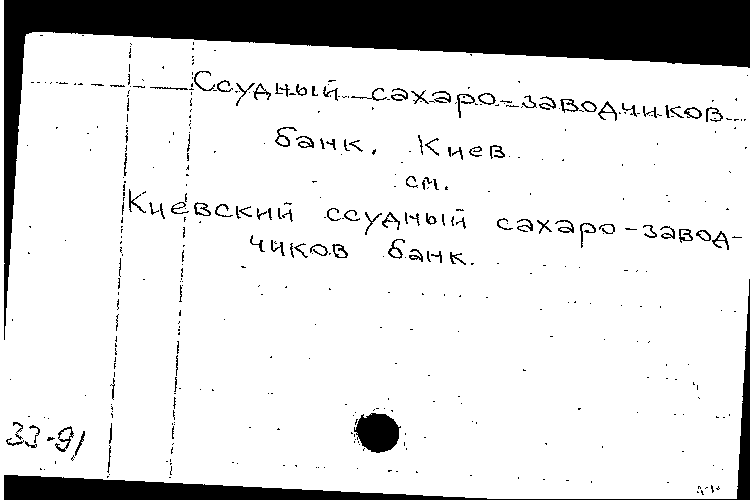 Ссудный сахаро-заводчиков
банк. Киев
см.
Киевский ссудный сахаро-завод-
чиков банк.
33-91